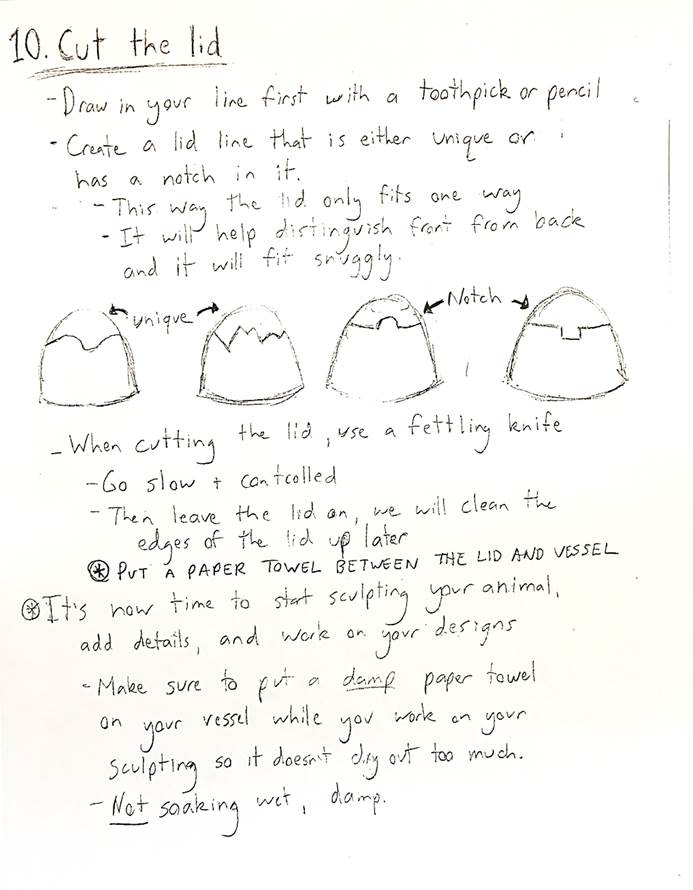 10. Cut the lid
- Draw in your line first with a toothpick or pencil
- Create a lid line that is either unique or
has a notch in it.
- This way the lid only fits one way
- It will help distinguish front from back
and it will fit snuggly.
unique
Notch
- When cutting the lid, use a fettling knife
- Go slow + controlled
- Then leave the lid on, we will clean the
edges of the lid up later
* PUT A PAPER TOWEL BETWEEN THE LID AND VESSEL
* It's now time to start sculpting your animal,
add details, and work on your designs
- Make sure to put a damp paper towel
on your vessel while you work on your
sculpting so it doesn't dry out too much.
- Not soaking wet, damp.